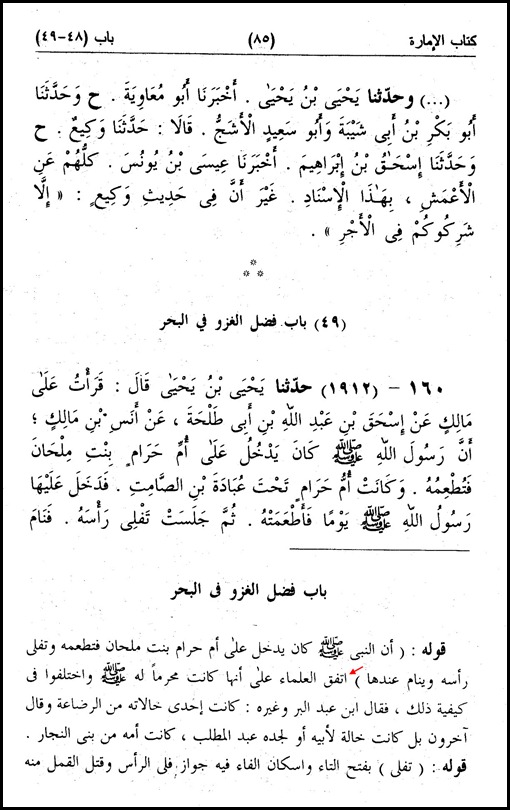 كتاب الإمارة (٨٥) باب (٤٨-٤٩)
(...) وحدّثنا يَحْيَى بْنُ يَحْيَىٰ . أَخْبَرَنَا أَبُو مُعَاوِيَةَ . ح وَحَدَّثَنَا
أَبُو بَكْرِ بْنُ أَبِى شَيْبَةَ وَأَبُو سَعِيدٍ الْأَشَجُّ . قَالَا : حَدَّثَنَا وَكِيعٌ . ح
وَحَدَّثَنَا إِسْحَـٰقُ بْنُ إِبْرَاهِيمَ . أَخْبَرَنَا عِيسَى بْنُ يُونُسَ . كلُّهُمْ عَنِ
الْأَعْمَشِ ، بِهَـٰذَا الْإِسْنَادِ . غَيْرَ أَنَّ فِى حَدِيثِ وَكِيعٍ : « إِلَّا
شَرِكُوكُمْ فِى الْأَجْرِ » .
(٤٩) باب فضل الغزو في البحر
١٦٠ – (١٩١٢) حدّثنا يَحْيَى بْنُ يَحْيَىٰ قَالَ : قَرَأْتُ عَلَىٰ
مَالِكٍ عَنْ إِسْحَقَ بْنِ عَبْدِ اللّٰهِ بْنِ أَبِى طَلْحَةَ ، عَنْ أَنَسِ بْنِ مَالِكٍ ؛
أَنَّ رَسُولَ اللّٰهِ ﷺ كَانَ يَدْخُلُ عَلَىٰ أُمِّ حَرَامٍ بِنْتِ مِلْحَانَ
فَتُطْعِمُهُ . وَكَانَتْ أُمُّ حَرَامٍ تَحْتَ عُبَادَةَ بْنِ الصَّامِتِ . فَدَخَلَ عَلَيْهَا
رَسُولُ اللّٰهِ ﷺ يَوْمًا فَأَطْعَمَتْهُ . ثُمَّ جَلَسَتْ تَفْلِى رَأْسَهُ . فَنَامَ
باب فضل الغزو فى البحر
قوله : ( أن النبى ﷺ كان يدخل علىٰ أم حرام بنت ملحان فتطعمه وتفلى
رأسه وينام عندها ) اتفق العلماء علىٰ أنها كانت محرماً له ﷺ واختلفوا فى
كيفية ذلك ، فقال ابن عبد البر وغيره : كانت إحدى خالاته من الرضاعة وقال
آخرون بل كانت خالة لأبيه أو لجده عبد المطلب ، كانت أمه من بنى النجار .
قوله : ( تفلى ) بفتح التاء واسكان الفاء فيه جواز فلى الرأس وقتل القمل منه